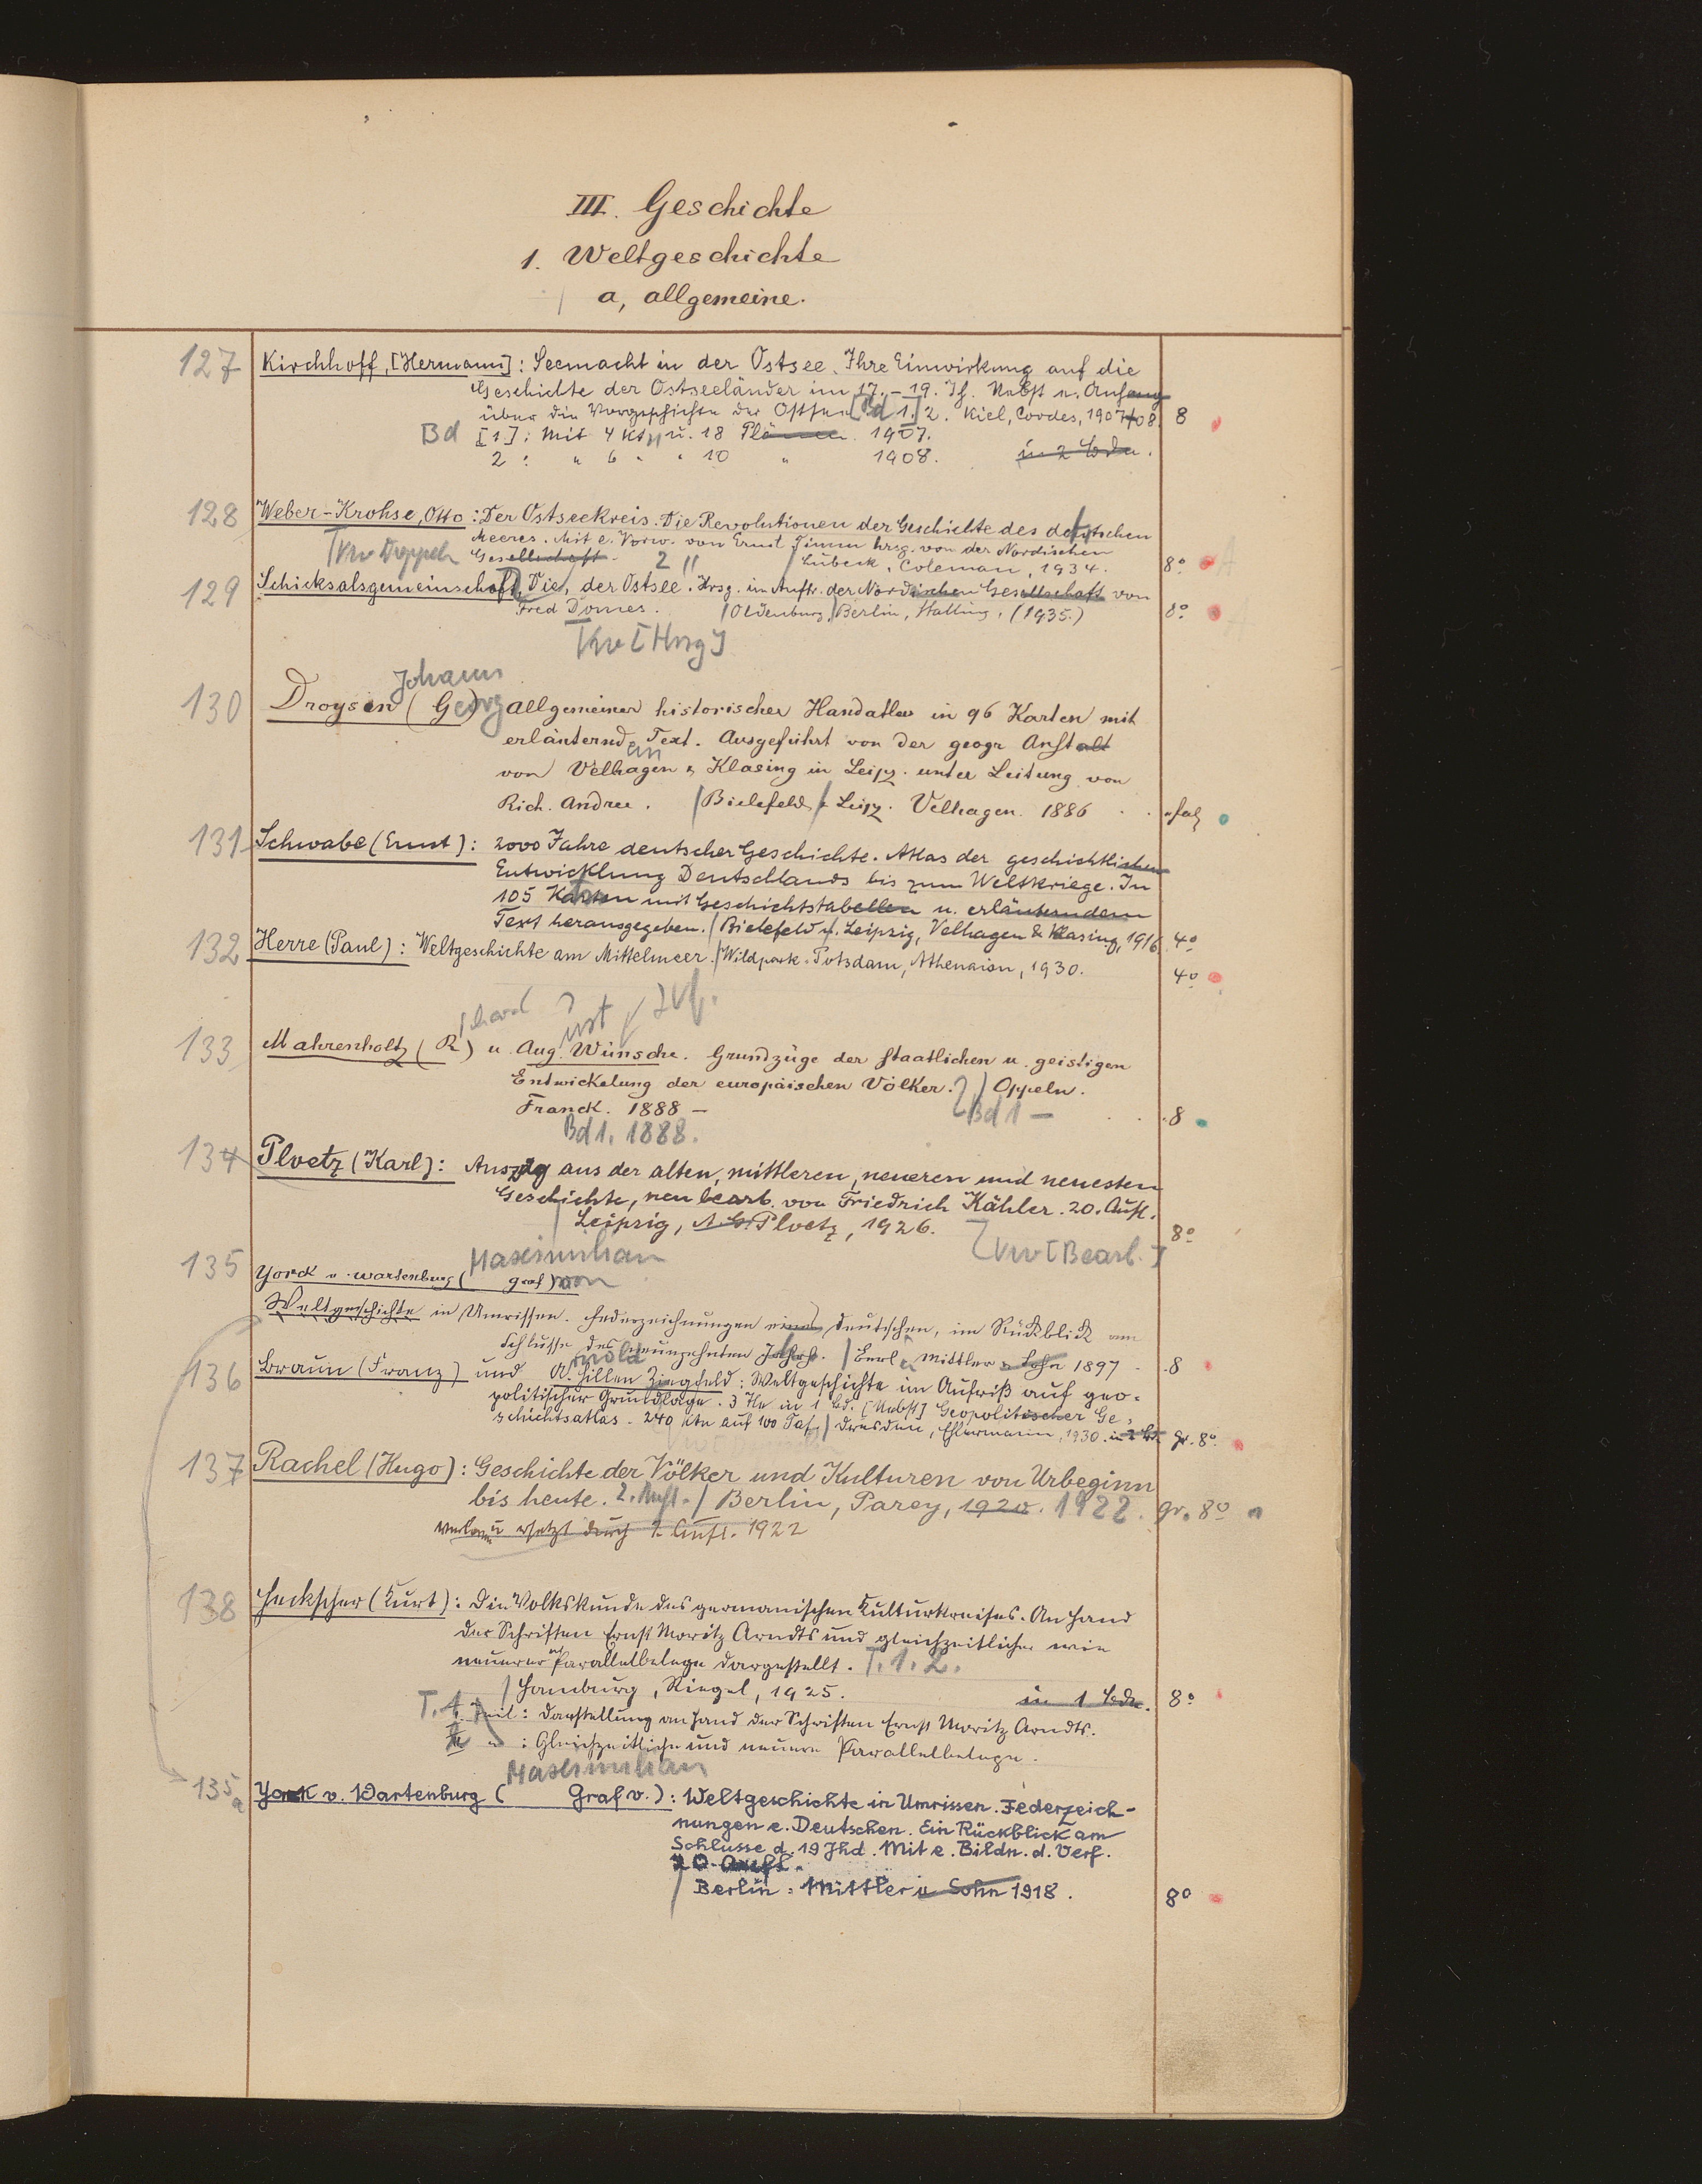 III. Geschichte
1. Weltgeschichte
a, allgemeine.
127 Kirchhoff, [Hermann]: Seemacht in der Ostsee. Ihre Einwirkung auf die
Geschichte der Ostseeländer im 17.–19. Jh. Nebst e. Anhang
über die Vorgeschichte der Ostsee [Bd 1.] 2. Kiel, Cordes, 1907/08. 8
Bd [1]: Mit 4 Kt. u. 18 Plänen. 1907.
2: " 6 " " 10 " 1908. in 2 Bdn.
128 Weber-Krohse, Otto: Der Ostseekreis. Die Revolutionen der Geschichte des deutschen
Meeres. Mit e. Vorw. von Ernst Timm hrsg. von der Nordischen
Gesellschaft. 2 " / Lübeck, Coleman, 1934. 8°
129 Schicksalsgemeinschaft, Die, der Ostsee. Hrsg. im Auftr. der Nordischen Gesellschaft von
Fred Domes. / Oldenburg, Berlin, Stalling, (1935.) 8°
[Vw [Hrsg]
130 Droysen (Johann Georg) Allgemeiner historischer Handatlas in 96 Karten mit
erläuterndem Text. Ausgeführt von der geogr Anstalt
von Velhagen & Klasing in Leipz. unter Leitung von
Rich. Andree. / Bielefeld / Leipz. Velhagen. 1886
131 Schwabe (Ernst): 2000 Jahre deutscher Geschichte. Atlas der geschichtlichen
Entwicklung Deutschlands bis zum Weltkriege. In
105 Karten mit Geschichtstabellen u. erläuterndem
Text herausgegeben. / Bielefeld u. Leipzig, Velhagen & Klasing, 1916. 4°
132 Herre (Paul): Weltgeschichte am Mittelmeer. / Wildpark-Potsdam, Athenaion, 1930. 4°
133 Mahrenholtz (Richard) u. August Wünsche. Grundzüge der staatlichen u. geistigen
Entwickelung der europäischen Völker. / Oppeln.
Franck. 1888 – Bd 1 – 8
Bd 1. 1888.
134 Ploetz (Karl): Auszug aus der alten, mittleren, neueren und neuesten
Geschichte, neu bearb. von Friedrich Kähler. 20. Aufl.
Leipzig, A. G. Ploetz, 1926. 8°
[Vw [Bearb.]
135 Yorck v. Wartenburg (Maximilian Graf) von
Weltgeschichte in Umrissen. Federzeichnungen eines Deutschen, im Rückblick am
Schlusse des neunzehnten Jahrh. / Berl. Mittler & Sohn 1897 8
136 Braun (Franz) und Arnold Hillen Ziegfeld: Weltgeschichte im Aufriß auf geo-
politischer Grundlage. 3 Tle in 1 Bd. [Nebst] Geopolitischer Ge-
schichtsatlas. 240 Ktn auf 100 Taf. / Dresden, Ehlermann, 1930. in 2 Bd. gr. 8°
137 Rachel (Hugo): Geschichte der Völker und Kulturen von Urbeginn
bis heute. 2. Aufl. / Berlin, Parey, 1920. 1922. gr. 8°
verloren u ersetzt durch 2. Aufl. 1922
138 Heckscher (Kurt): Die Volkskunde des germanischen Kulturkreises. An Hand
der Schriften Ernst Moritz Arndts und gleichzeitlicher wie
neuerer Parallelbelege dargestellt. T. 1. 2.
/ Hamburg, Riegel, 1925. in 1 Bde. 8°
T. 1. Teil: Darstellung an Hand der Schriften Ernst Moritz Arndts.
2. " : Gleichzeitliche und neuere Parallelbelege.
135a Yorck v. Wartenburg (Maximilian Graf v.): Weltgeschichte in Umrissen. Federzeich-
nungen e. Deutschen. Ein Rückblick am
Schlusse d. 19 Jhd. Mit e. Bildn. d. Verf.
20. Aufl.
/ Berlin: Mittler u. Sohn 1918. 8°